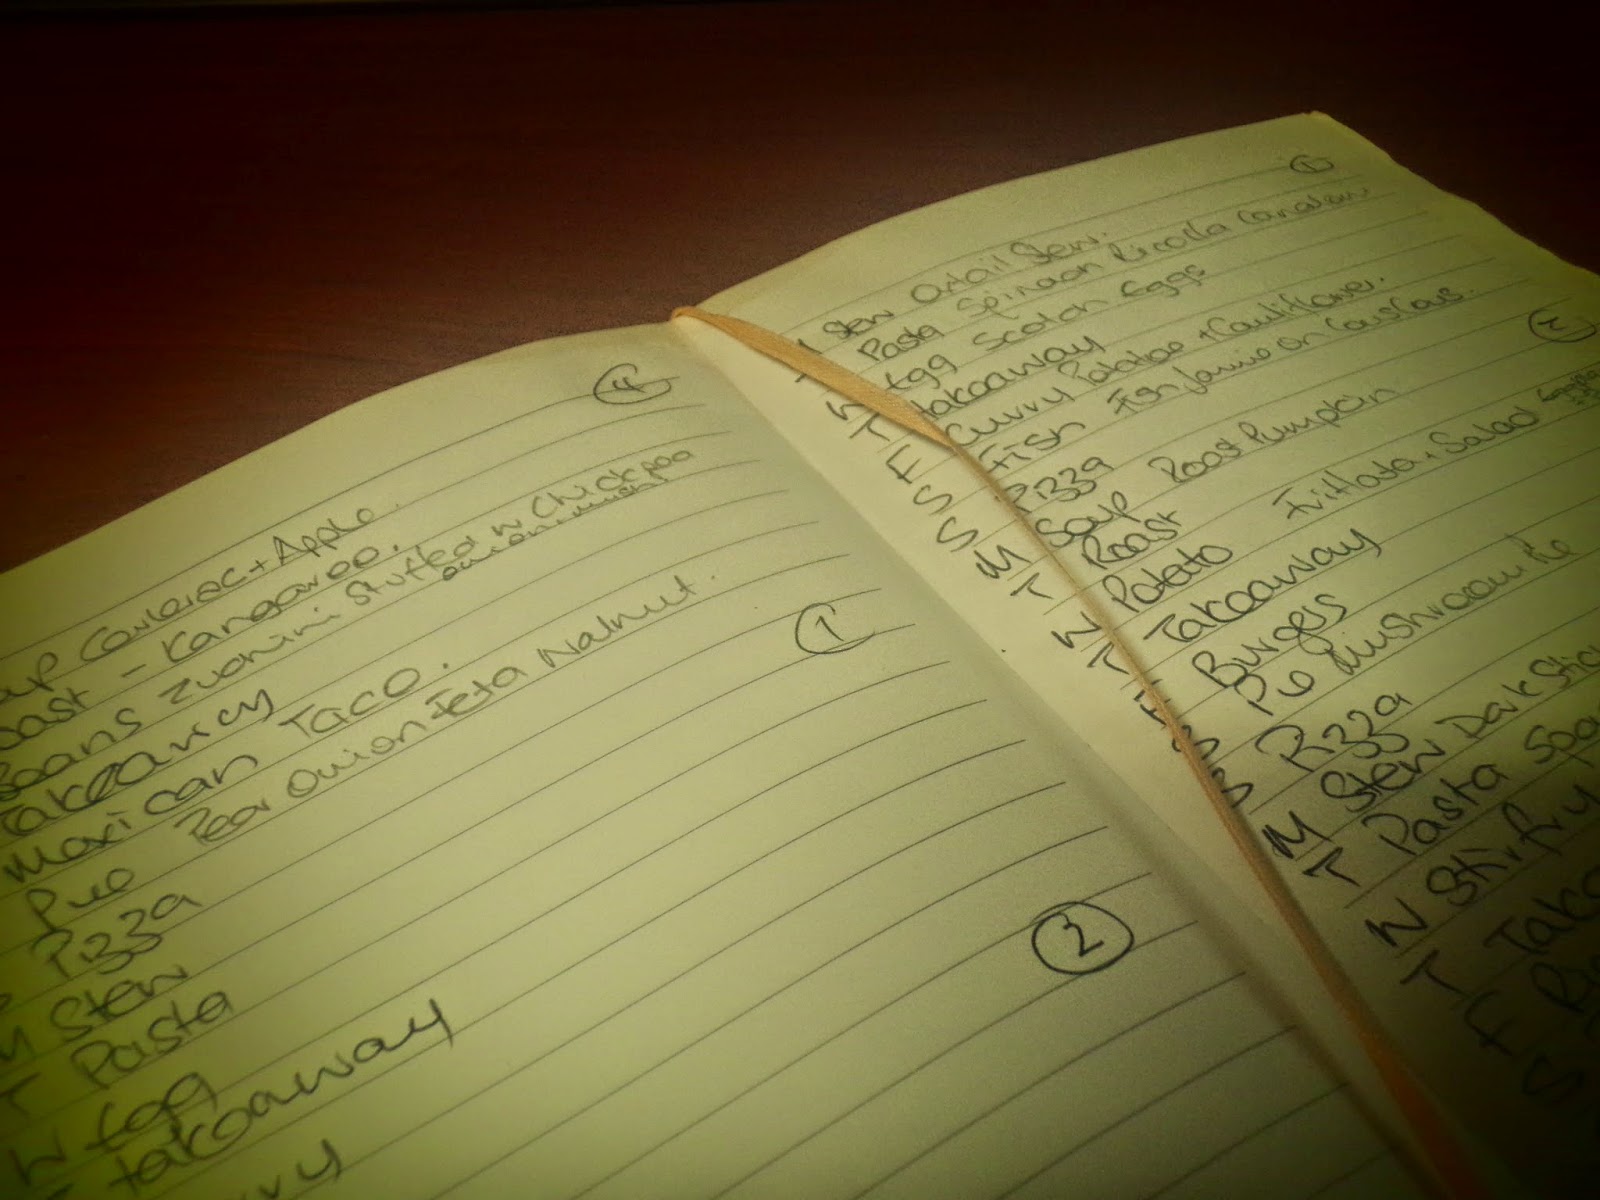 4
Soup Celeriac + Apple.
Roast - Kangaroo.
Beans Zucchini Stuffed w Chickpea
onion, mush
Takeaway
Mexican Taco.
Pie Pear Onion Feta Walnut.
Pizza
1
M Stew
T Pasta
W Egg
T Takeaway
2
1
M Stew Oxtail Stew.
T Pasta Spinach Ricotta
W Egg Scotch Eggs
T Takeaway
F Curry Potatoe + Cauliflower.
S Fish Fish Jamie on Cous Cous.
S Pizza
2
M Soup Roast Pumpkin
T Roast
W Potato Frittata + Salad
T Takeaway
F Burgers
S Pie Mushroom
S Pizza
M Stew
T Pasta
W Stirfry
T
F
S